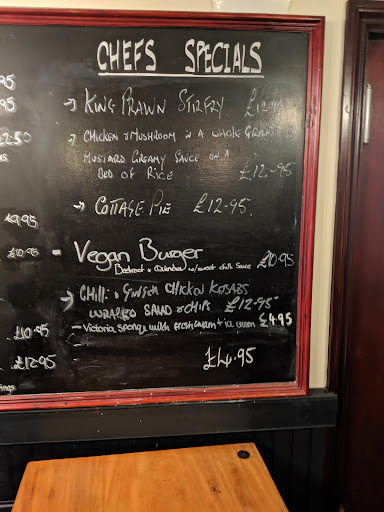 CHEFS SPECIALS
→ KING PRAWN STIRFRY £12.95
→ CHICKEN & MUSHROOM IN A WHOLE GRAIN
MUSTARD CREAMY SAUCE ON A
BED OF RICE £12.95
→ COTTAGE PIE £12.95.
= Vegan Burger £10.95
Beetroot + Quinoa w/ sweet chilli Sauce
→ CHILLI & GINGER CHICKEN KEBABS
WRAPPED SALAD & CHIPS £12.95
- Victoria sponge with fresh cream + ice cream £4.95
£4.95
.95
.95
2.50
£9.95
£10.95
£10.95
£12.95